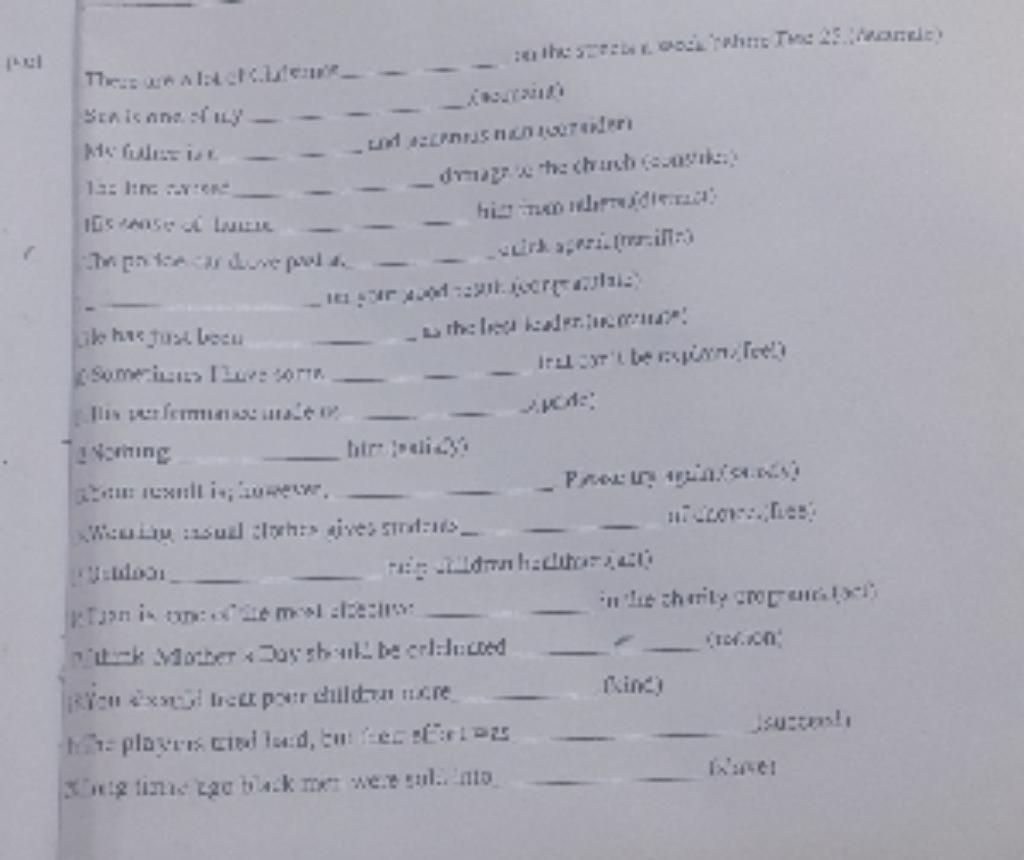 There are a lot of Christmas __________ on the streets a week before Dec 25.(decorate)
Sue is one of my __________ (acquaint)
My father is a __________ and generous man (consider)
The fire caused __________ damage to the church (consider)
His sense of humor __________ him from others.(distinct)
The police car drove past at __________ speed.(terrific)
__________ on your good result.(congratulate)
He has just been __________ as the best leader.(nominate)
Sometimes I have some __________ that can't be explain.(feel)
His performance made us __________.(pride)
Nothing __________ him (satisfy)
Your result is; however, __________. Please try again.
Wearing casual clothes gives students __________ of choice.(free)
Outdoor __________ help children healthier.(act)
is one of the most effective __________ in the charity programs.(act)
I think Mother's Day should be celebrated __________ (nation)
You should treat poor children more __________ (kind)
The players tried hard, but their effort was __________ (succeed)
Long time ago black men were sold into __________ (slave)